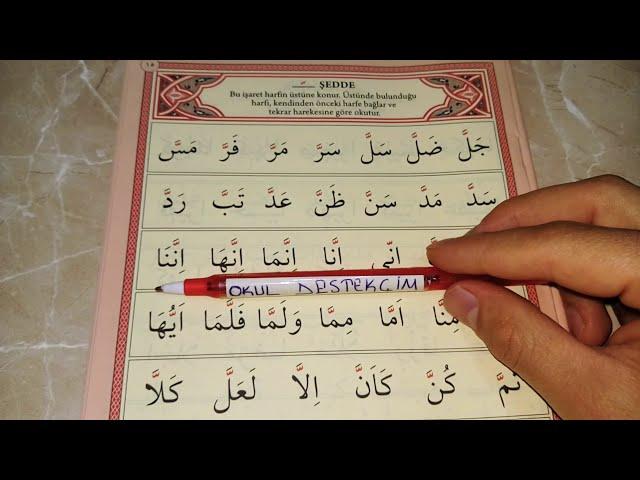 ١٥
ŞEDDE
Bu işaret harfin üstüne konur. Üstünde bulunduğu
harfi, kendinden önceki harfe bağlar ve
tekrar harekesine göre okutur.
جَلَّ ضَلَّ سَلَّ سَرَّ مَرَّ فَرَّ مَسَّ
سَدَّ مَدَّ سَنَّ ظَنَّ عَدَّ تَبَّ رَدَّ
اِنّٖى اِنَّا اِنَّمَا اِنَّهَا اِنَّنَا
OKUL DESTEKCİM
مِنَّا اَمَّا مِمَّا وَلَمَّا فَلَمَّا اَيُّهَا
ثُمَّ كُنَّ كَاَنَّ اِلَّا لَعَلَّ كَلَّا